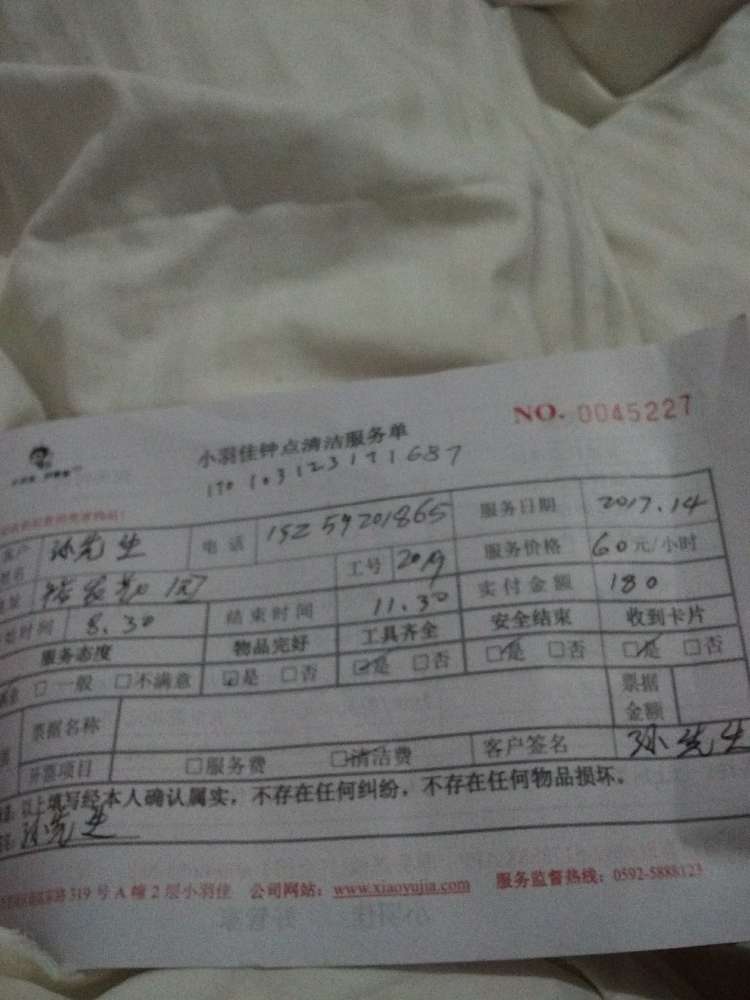 NO. 0045227
小羽佳钟点清洁服务单
170103123171687
客户 孙先生 电话 15259201865 服务日期 2017.14
工号 2019 服务价格 60元/小时
时间 8.30 结束时间 11.30 实付金额 180
服务态度 物品完好 工具齐全 安全结束 收到卡片
□一般 □不满意 □是 □否 □是 □否 □是 □否 □是 □否
票据名称 票据金额
开票项目 □服务费 □清洁费 客户签名 孙先生
以上填写经本人确认属实，不存在任何纠纷，不存在任何物品损坏。
孙先生
路319号A幢2层小羽佳 公司网站：www.xiaoyujia.com 服务监督热线：0592-5888123